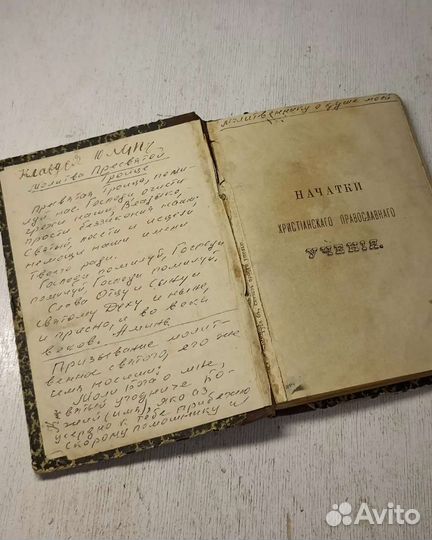 Молитва Пресвятой
Троице
Пресвятая Троице, поми-
луй нас, Господи, очисти
грехи наши, Владыко,
прости беззакония наши.
Святый, посети и исцели
немощи наши имени
твоего ради.
Господи помилуй, Господи
помилуй, Господи помилуй.
Слава Отцу и Сыну и
святому Духу и ныне,
и присно, и во веки
веков. Аминь
Призывание молит-
венное святого, его же
имя носиши:
Моли Бога о мне,
святый угодниче Бо-
жий (имя), яко аз
усердно к тебе прибегаю
скорому помощнику и
молитвеннику о душе моей
НАЧАТКИ
ХРИСТІАНСКАГО ПРАВОСЛАВНАГО
УЧЕНІЯ.
Avito